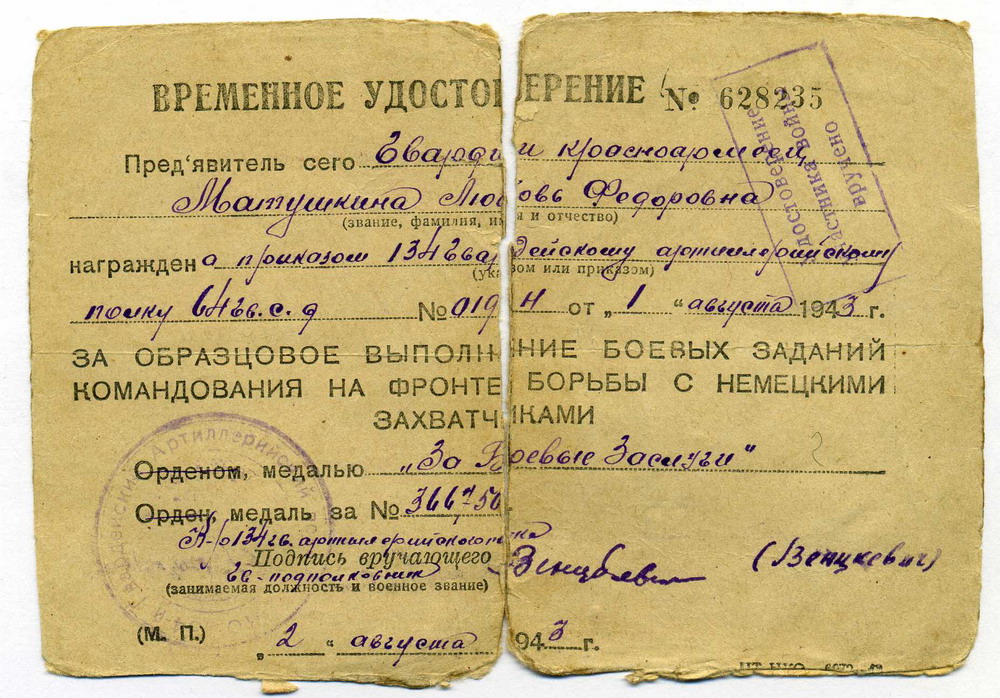 ВРЕМЕННОЕ УДОСТОВЕРЕНИЕ № 628235
Пред'явитель сего Гвардии красноармеец
Матушкина Любовь Федоровна
(звание, фамилия, имя и отчество)
награждена приказом 134 Гвардейскому артиллерийскому
(указом или приказом)
полку 64 гв. с. д № 019 Н от „ 1 “ августа 1943 г.
ЗА ОБРАЗЦОВОЕ ВЫПОЛНЕНИЕ БОЕВЫХ ЗАДАНИЙ
КОМАНДОВАНИЯ НА ФРОНТЕ БОРЬБЫ С НЕМЕЦКИМИ
ЗАХВАТЧИКАМИ
Орденом, медалью „За Боевые Заслуги"
Орден, медаль за №
К-р 134 гв. артиллерийского полка
Подпись вручающего (Венцкевич)
гв-подполковник
(занимаемая должность и военное звание)
(М. П.)
„ 2 “ августа 1943 г.
удостоверение
участника войны
вручено
Гвардейский Артиллерийский